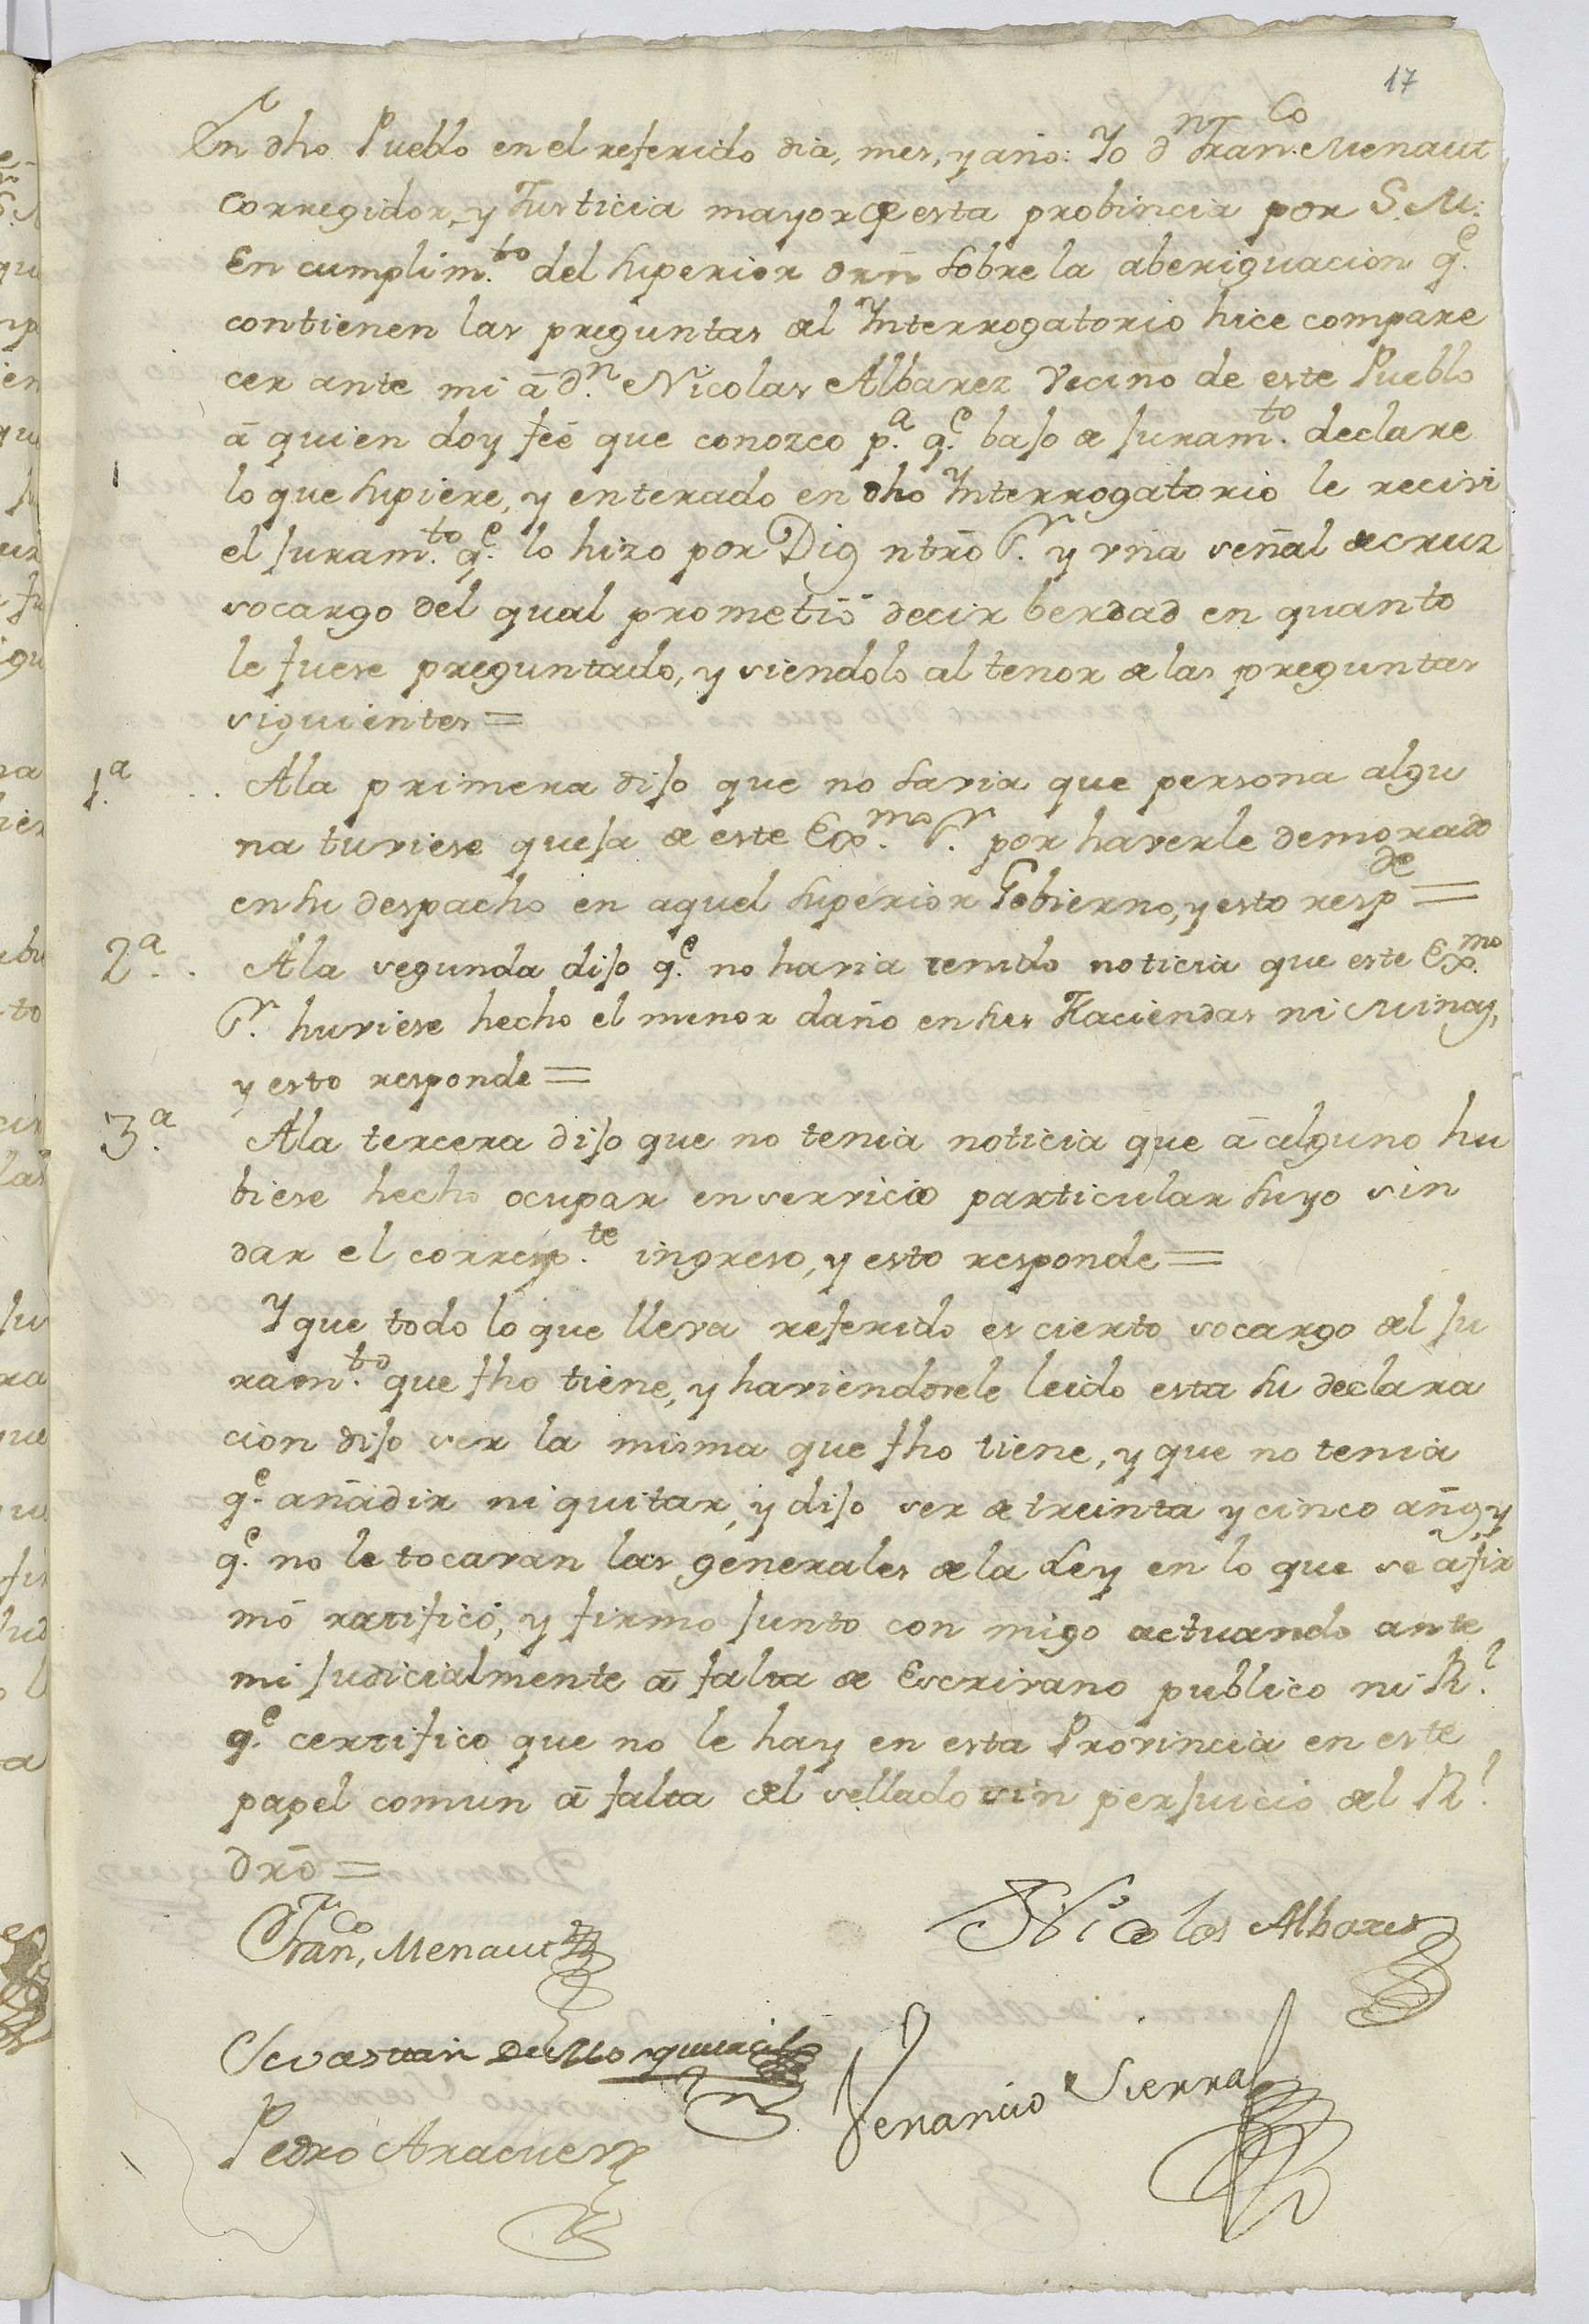 17
En dho Pueblo en el referido dia, mes, y año: Yo dn Franco. Menaut
Corregidor, y Justicia mayor de esta probincia por S. M.
En cumplimto. del superior orñ sobre la aberiguacion qe.
contienen las preguntas del Ynterrogatorio hice compare
cer ante mi â dn. Nicolas Albarez Vecino de este Pueblo
â quien doy feê que conozco pa. qe. bajo de juramto. declare
lo que supiere, y enterado en dho Ynterrogatorio le recivi
el juramto. qe. lo hizo por Dios ntrô Sr. y vña señal de cruz
socargo del qual prometiô decir berdad en quanto
le fuese preguntado, y siendolo al tenor de las preguntas
siguientes =
1a. Ala primera dijo que no savia que persona algu
na tuviese quesa de este Exmo. Sr. por haverle demorado
en su despacho en aquel superior Gobierno, y esto respde =
2a. Ala segunda dijo qe. no havia tenido noticia que este Exmo.
Sr. huviese hecho el menor daño en sus Haciendas ni Minas,
y esto responde =
3a. Ala tercera dijo que no tenia noticia que â alguno hu
biese hecho ocupar en servicio particular suyo sin
dar el corresp.te ingreso, y esto responde =
Y que todo lo que lleva referido es cierto socargo del ju
ramto. que fho tiene, y haviendosele leido esta su declara
cion dijo ser la misma que fho tiene, y que no tenia
qe. añadir ni quitar, y dijo ser de treinta y cinco años y
qe. no le tocavan las generales de la Ley en lo que se âfir
mô ratificô, y firmo junto con migo actuando ante
mi judicialmente â falta de Escrivano publico ni Rl.
qe. certifico que no le hay en esta Provincia en este
papel comun â falta del sellado sin perjuicio del Rl.
drô =
Franco. Menaut
Nicolas Albares
Sevastian
Venancio Sierra
Pedro Aracues